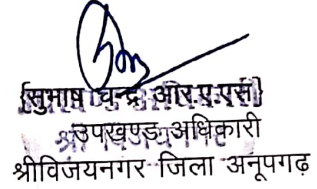 [सुभाष चन्द्र आर.ए.एस]
उपखण्ड अधिकारी
श्रीविजयनगर जिला अनूपगढ़